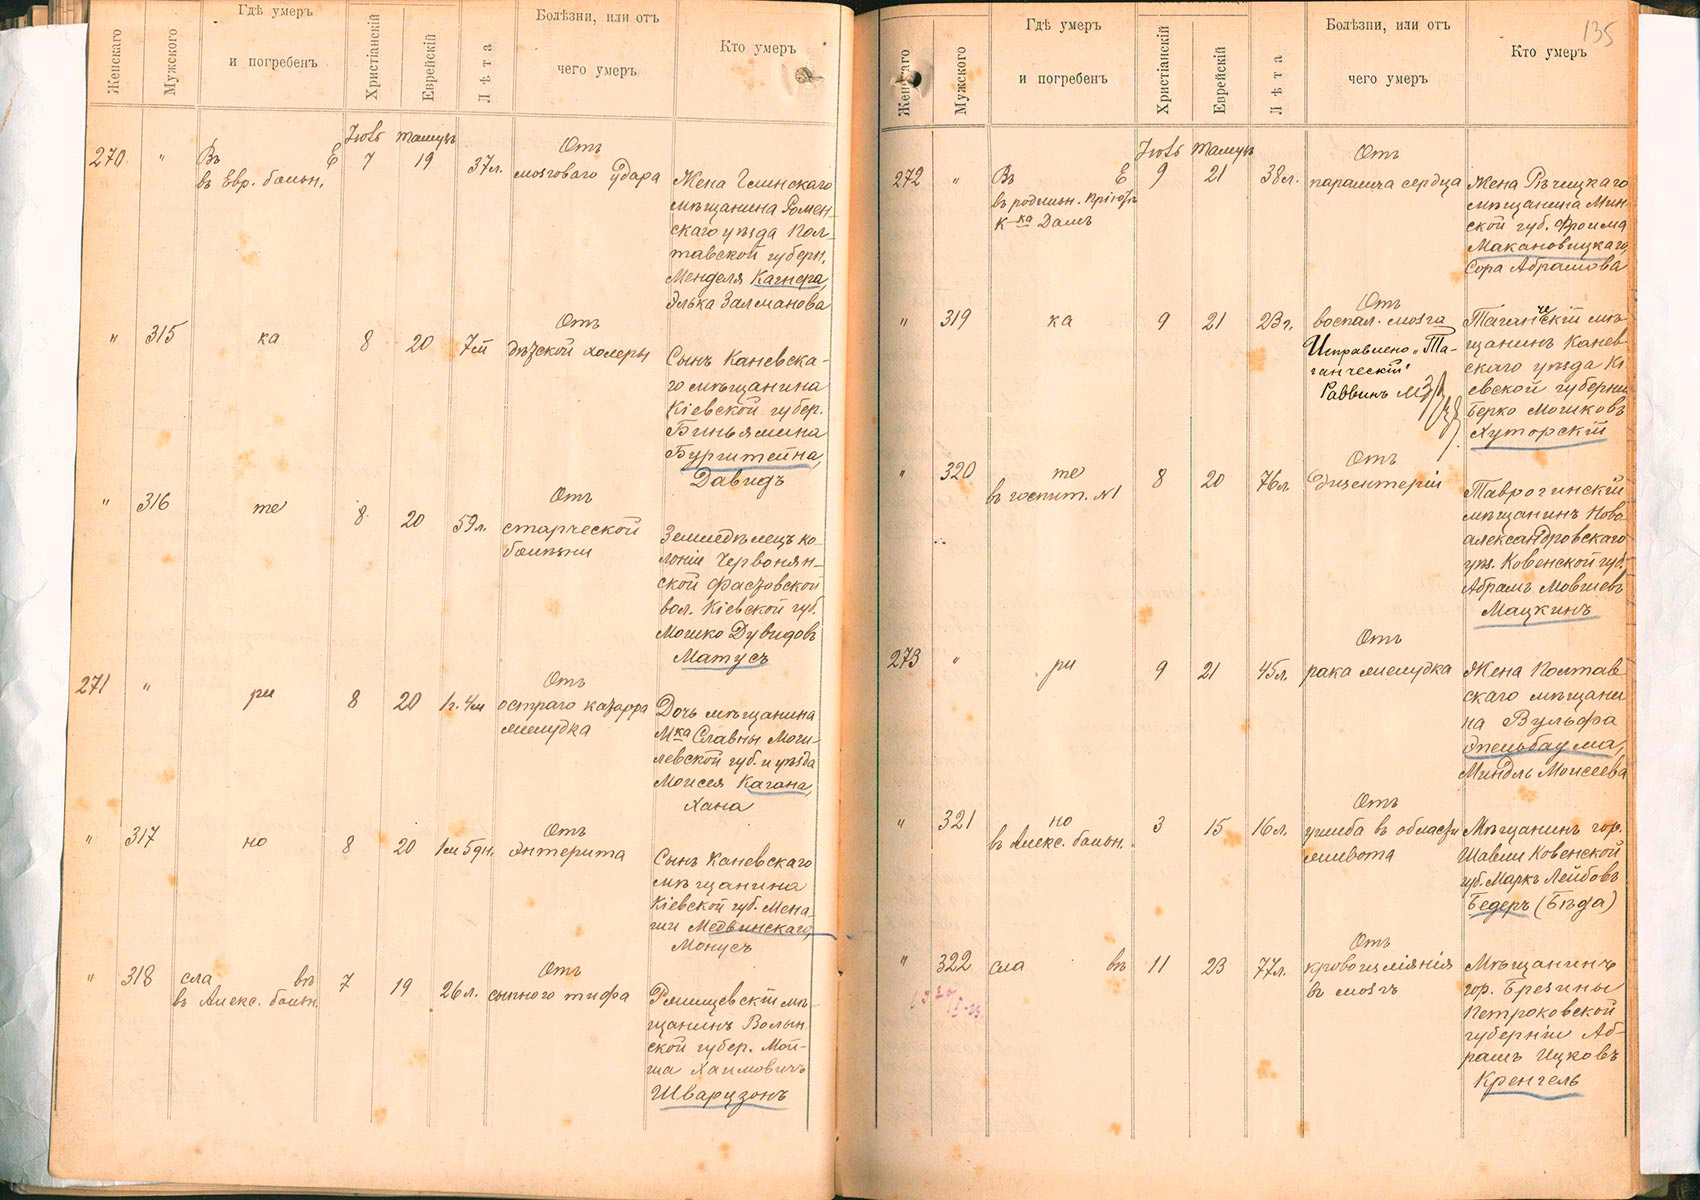 Женскаго
Мужского
Гдѣ умеръ
и погребенъ
Христіанскій
Еврейскій
Лѣта
Болѣзни, или отъ
чего умеръ
Кто умеръ
270
"
Въ Е
въ Евр. больн.
7
19
37 л.
Отъ
мозговаго удара
Жена Глинскаго
мѣщанина Ромен-
скаго уѣзда Пол-
тавской губерн.
Менделя
Элька Залманова
"
315
ка
8
20
7 м
Отъ
дѣтской холеры
Сынъ Каневска-
го мѣщанина
Кіевской губер.
Биньямина
Бурштейна,
Давидъ
"
316
те
8
20
59 л.
Отъ
старческой
болѣзни
Земледѣлецъ ко-
лоніи Червонян-
ской Фастовской
вол. Кіевской губ.
Мошко Дувидовъ
Матусъ
271
"
ри
8
20
1 г. 4 м
Отъ
остраго катарра
желудка
Дочь мѣщанина
М-ка Славны Моги-
левской губ. и уѣзда
Моисея Кагана,
Хана
"
317
но
8
20
1 м 5 дн.
Отъ
энтерита
Сынъ Каневскаго
мѣщанина
Кіевской губ. Мена-
ши Медвинскаго,
Монусъ
"
318
сла въ
въ Алекс. больн.
7
19
26 л.
Отъ
сыпного тифа
мѣ-
щанинъ Волын-
ской губер. Мой-
ша Хаимовичъ
Шварцзонъ
135
Женскаго
Мужского
Гдѣ умеръ
и погребенъ
Христіанскій
Еврейскій
Лѣта
Болѣзни, или отъ
чего умеръ
Кто умеръ
272
"
Въ Е
въ родильн. пріютѣ
К-ка Дамъ
9
21
38 л.
Отъ
паралича сердца
Жена Рѣчицкаго
мѣщанина Мин-
ской губ. Фроима
Макановицкаго,
Сора Абрамова
"
319
ка
9
21
23 г.
Отъ
воспал. мозга
Исправлено „Та-
ганческій"
Раввинъ
Таганческій мѣ-
щанинъ Канев-
скаго уѣзда Кі-
евской губерніи
Берко Мошковъ
Хуторскій
"
320
те
въ госпит. №1
8
20
76 л.
Отъ
дизентеріи
Таврогинскій
мѣщанинъ Ново-
александровскаго
уѣз. Ковенской губ.
Абрамъ Мовшевъ
Мацкинъ
273
"
ри
9
21
45 л.
Отъ
рака желудка
Жена Полтав-
скаго мѣщани-
на Вульфа
Эпельбаума,
Миндль Моисеева
"
321
но
въ Алекс. больн.
3
15
16 л.
Отъ
ушиба въ области
живота
Мѣщанинъ гор.
Шавли Ковенской
губ. Маркъ Лейбовъ
Бедеръ (Бѣда)
"
322
сла въ
11
23
77 л.
Отъ
кровоизліянія
въ мозгъ
Мѣщанинъ
гор. Брезины
Петроковской
губерніи Аб-
рамъ Ицковъ
Кренгель